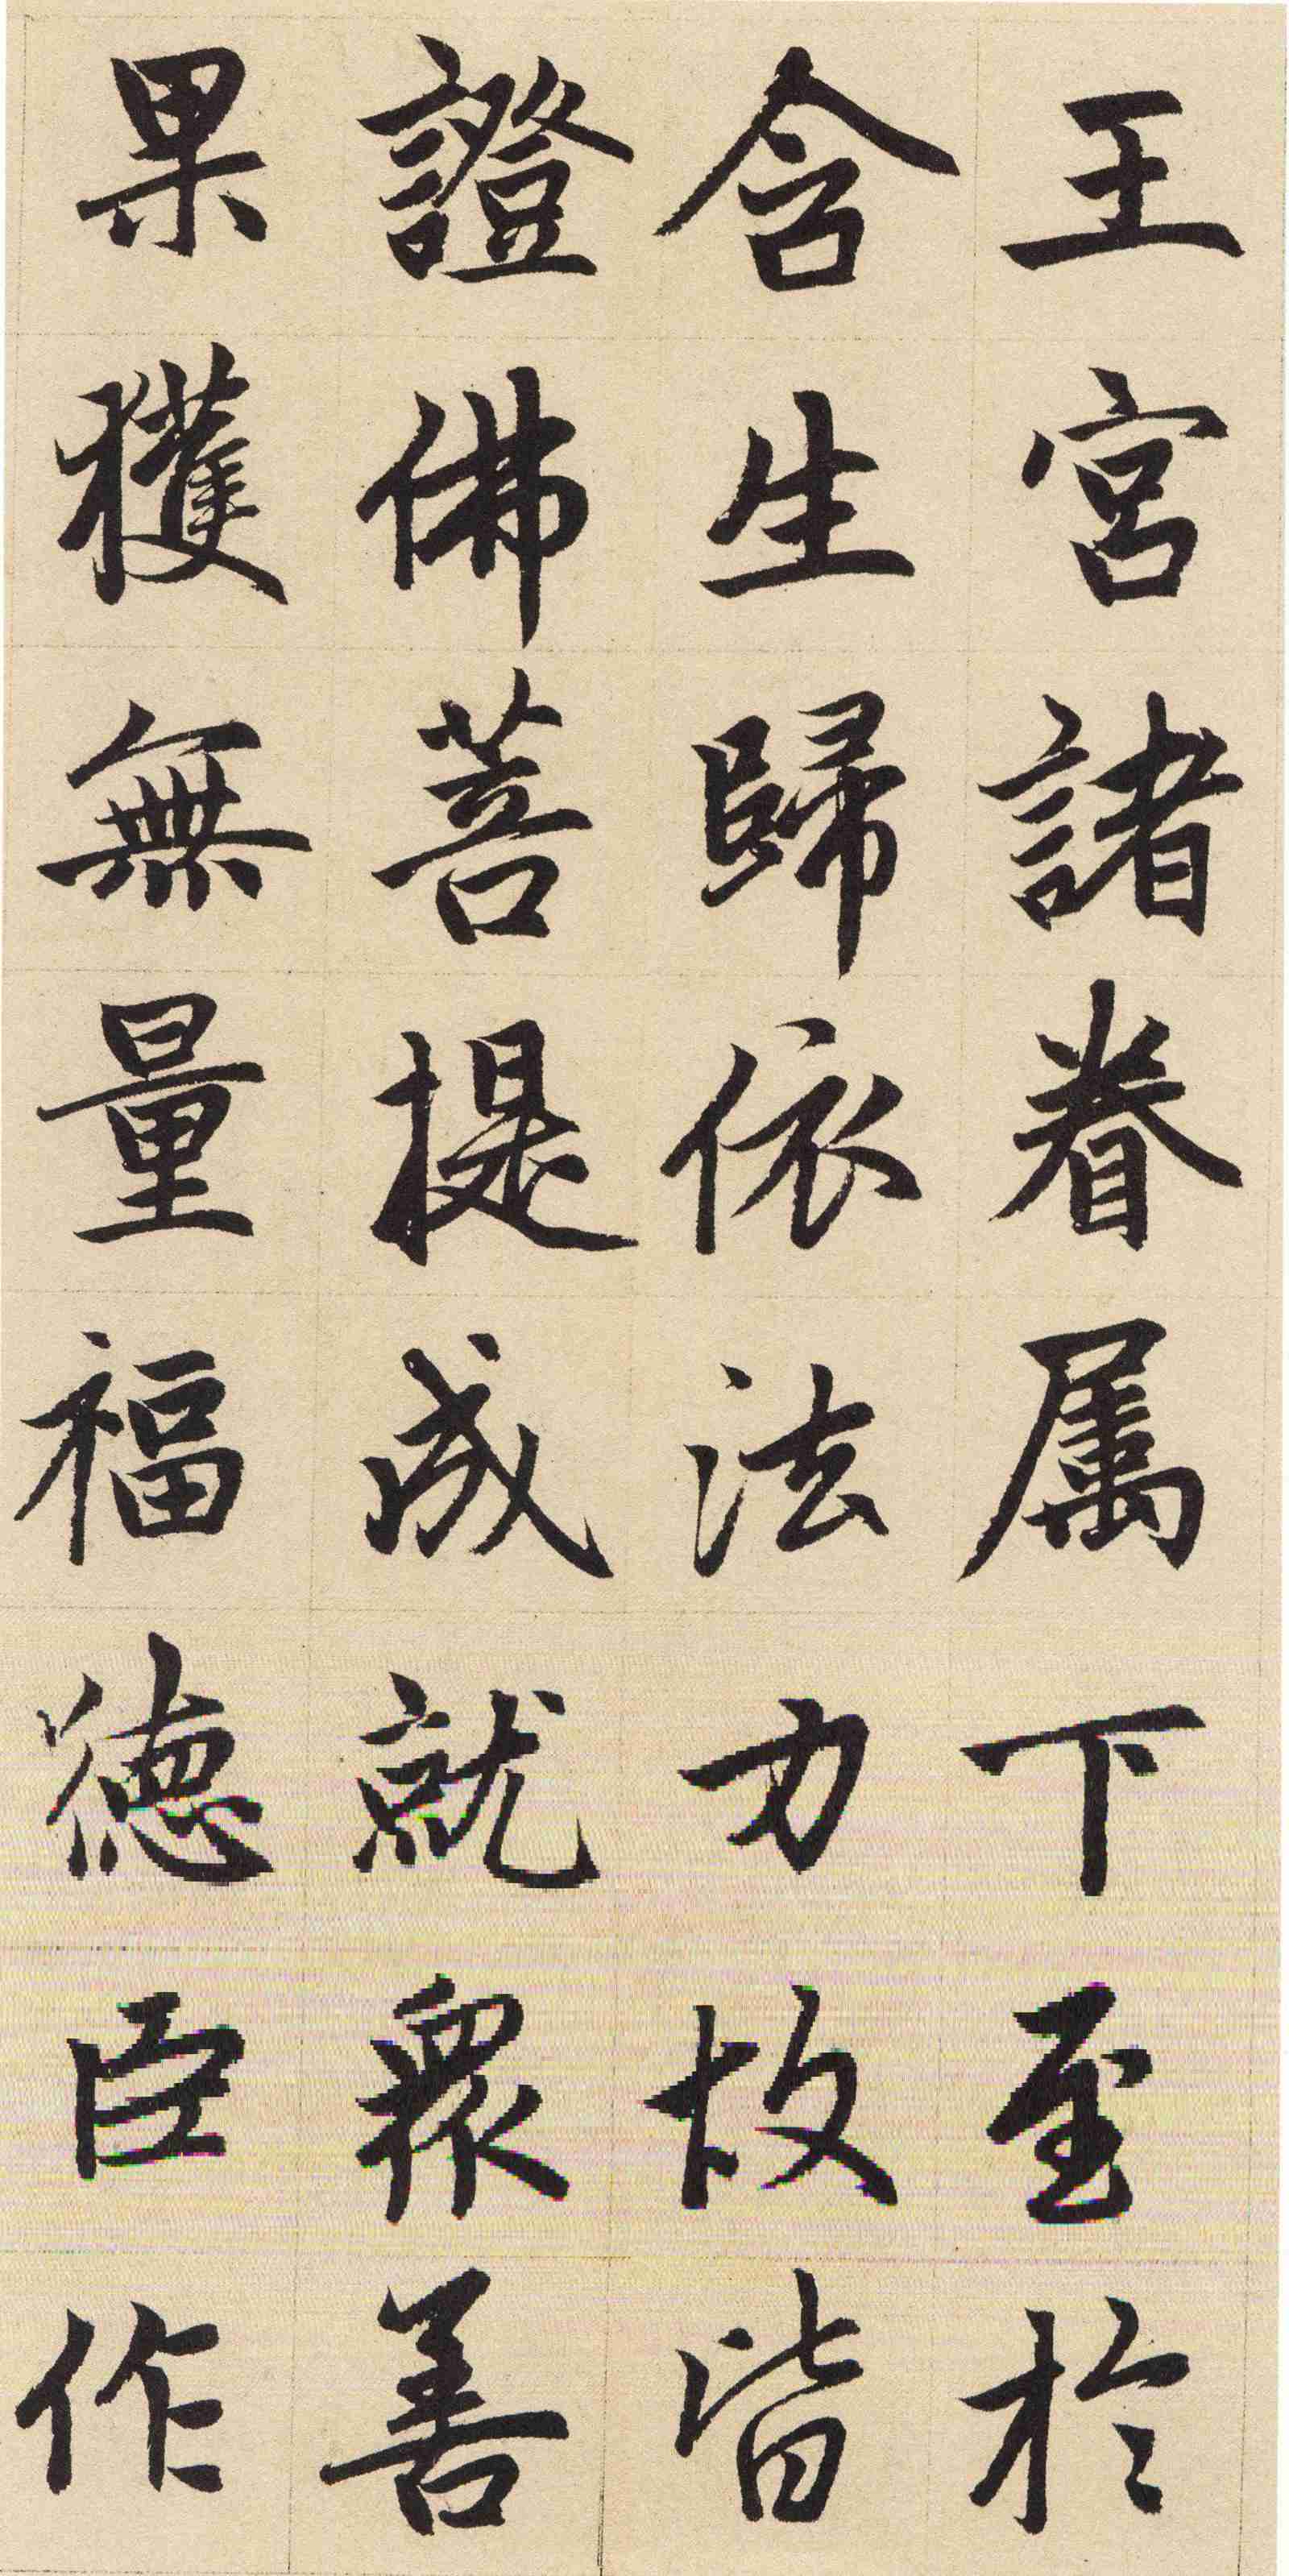 王宮諸眷属下至於
含生歸依法力故皆
證佛菩提成就眾善
果獲無量福德臣作